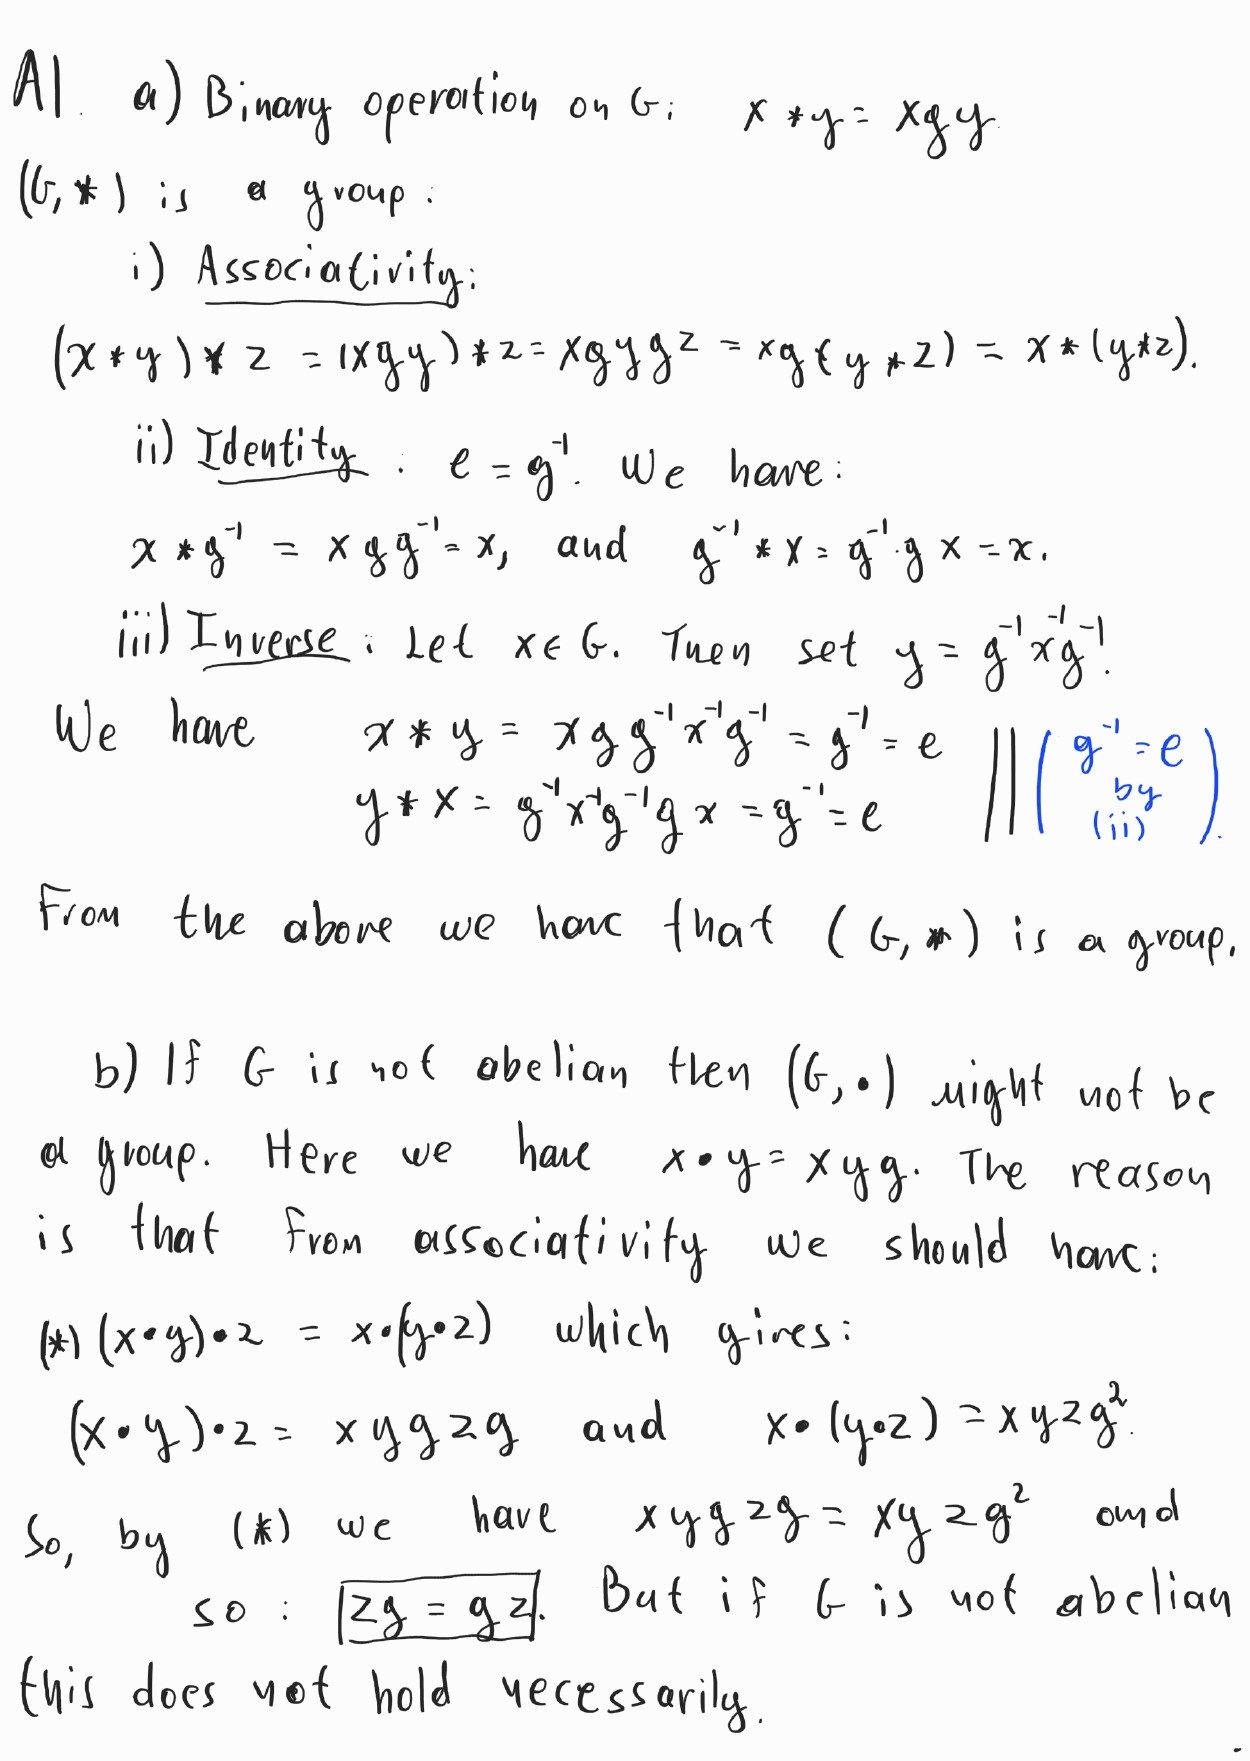 A1. a) Binary operation on G: x * y = xgy.
(G, *) is a group:
i) Associativity:
(x * y) * z = (xgy) * z = xgygz = xg(y * z) = x * (y*z).
ii) Identity : e = g⁻¹. We have:
x * g⁻¹ = x g g⁻¹ = x, and g⁻¹ * x = g⁻¹·g x = x.
iii) Inverse : Let x ∈ G. Then set y = g⁻¹x⁻¹g⁻¹.
We have x * y = x g g⁻¹x⁻¹g⁻¹ = g⁻¹ = e || ( g⁻¹ = e
y * x = g⁻¹x⁻¹g⁻¹g x = g⁻¹ = e by
(ii) ).
From the above we have that (G, *) is a group.
b) If G is not abelian then (G, •) might not be
a group. Here we have x • y = x y g. The reason
is that from associativity we should have:
(*) (x•y)•z = x•(y•z) which gives:
(x • y)•z = x y g z g and x• (y•z) = x y z g².
So, by (*) we have x y g z g = xy z g² and
so : zg = gz. But if G is not abelian
this does not hold necessarily.